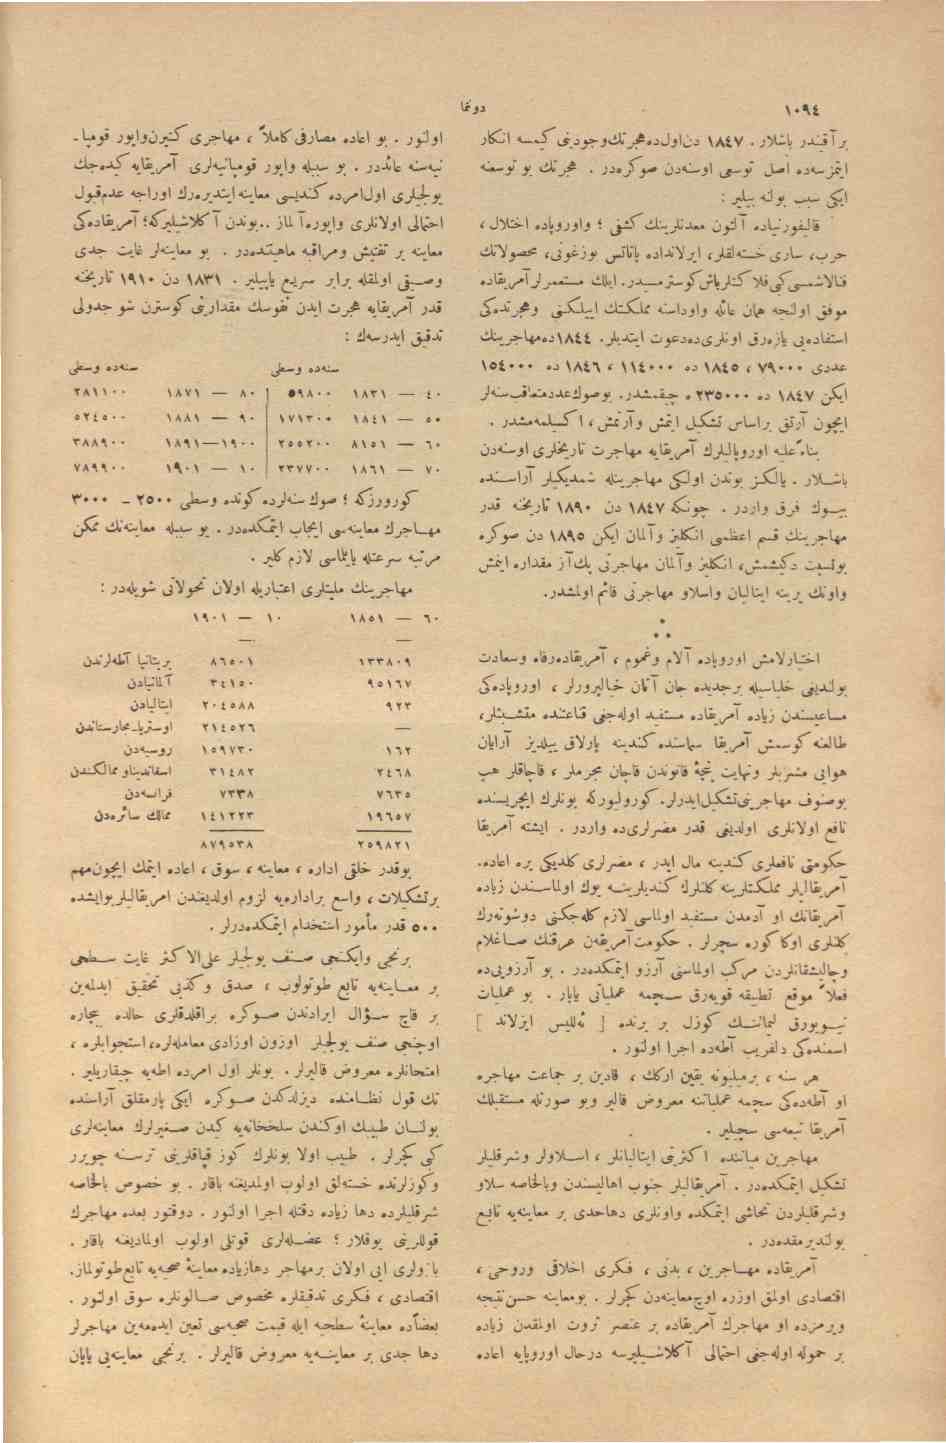 ١٠٩٤
دونما
بر آقیندر باشلار . ١٨٤٧ دن اول ده هجرتك وجودینی كیمسه انكار
ایتمزسه ده اصل توسعی اوسنه دن صوكره در . هجرتك بو توسعنه
ایكی سبب بولنه بیلیر :
قالیفورنیاده آلتون معدنلرینك كشفی ؛ واوروپاده اختلال ،
حرب، ساری خسته لقلر، ایرلانداده پاتاتس بوزغونی، محصولاتك
فنالاشمسی كبی فلاكتلر باش كوسترمسیدر. ایلك مستعمرلر آمریقاده
موفق اولنجه همان عائله واوداسنه مملكتك ایبلكنی وهجرتده كی
استفاده یی یازه رق اونلری ده دعوت ایتدیلر. ١٨٤٤ ده مهاجرینك
عددی ٧٩٠٠٠ ، ١٨٤٥ ده ١١٤٠٠٠ ، ١٨٤٦ ده ١٥٤٠٠٠
ایكن ١٨٤٧ ده ٢٣٥٠٠٠ ه چیقمشدر. بو صوك عدد متعاقب سنه لر
ایچون آرتق بر اساس تشكیل ایتمش وآرتمش، اكسیلمه مشدر .
بناءً علیه اوروپالیلرك آمریقایه مهاجرت تاریخلری اوسنه دن
باشلار . یالكز بوندن اولكی مهاجرینله شمدیكیلر آراسنده
بیوك فرق واردر . چونكه ١٨٤٧ دن ١٨٩٠ تاریخنه قدر
مهاجرینك قسم اعظمی انكلیز وآلمان ایكن ١٨٩٥ دن صوكره
بو نسبت دكیشمش، انكلیز وآلمان مهاجرتی پك آز مقداره اینمش
واونك یرینه ایتالیان واسلاو مهاجرتی قائم اولمشدر.
* * *
اختیارلامش اوروپاده آلام وغموم ، آمریقاده رفاه وسعادت
بولندیغی خلیاسیله بر جدیده جان آتان خیالپرورلر ، اوروپاده كی
مساعیسندن زیاده آمریقاده مستفید اوله جغی قناعتنده متشبثلر،
طالعنه كوسمش آمریقا سماسنده كندینه پارلاق ییلدیز آرایان
هوایی مشربلر ونهایت پنجهٔ قانوندن قاچان مجرملر ، قاچاقلر هپ
بو صنوف مهاجرینی تشكیل ایدرلر. كورولیوركه بونلرك ایچریسنده
نافع اولانلری اولدیغی قدر مضرلری ده واردر . ایشته آمریقا
حكومتی نافعلری كندینه مال ایدر ، مضرلری كلدیكی یره اعاده.
آمریقالیلر مملكتلرینه كلنلرك كندیلرینه یوك اولماسندن زیاده
آمریقانك او آدمدن مستفید اولماسی لازم كله جكنی دوشونه رك
كلنلری اوكا كوره سچرلر . حكومت آمریقه ن عرقنك صاغلام
وچالیشقانلردن مركب اولماسنی آرزو ایتمكده در . بو آرزویی ده
فعلاً موقع تطبیقه قویه رق سچمه عملیاتی یاپار . بو عملیات
نیویورق لیماننك كوزل بر یرنده [ ئه للیس ایزلاند ]
اسمنده كی دلفریب آطه ده اجرا اولنور .
هر سنه ، بر میلیونه یقین اركك ، قادین بر جماعت مهاجره
او آطه ده كی سچمه عملیاتنه معروض قالیر وبو صورتله مستقبلك
آمریقا تبعه سی سچیلیر .
مهاجرین میاننده اكثریتی ایتالیانلر ، اسلاولر وشرقلیلر
تشكیل ایتمكده در . آمریقالیلر جنوب اهالیسندن وبالخاصه سلاو
وشرقلیلردن تحاشی ایتمكده واونلری دها جدی بر معاینه یه تابع
بولندیرمقده در .
آمریقاده مهاجرین ، بدنی ، فكری اخلاقی وروحی ،
اقتصادی اولمق اوزره اوچ معاینه دن كچرلر . بو معاینه حسن نتیجه
ویرمزده او مهاجرك آمریقاده بر عنصر ثروت اولمقدن زیاده
بر حموله اوله جغی احتمالی آكلاشیلیرسه درحال اوروپایه اعاده
اولنور . بو اعاده مصارفی كاملاً ، مهاجری كتیرن واپور قومپا-
نیه سنه عائددر . بو سببله واپور قومپانیه لری آمریقایه كیده جك
یولجیلری اول امرده كندیسی معاینه ایتدیره رك اوراجه عدم قبول
احتمالی اولانلری واپوره آلماز .. بوندن آكلاشیلیركه؛ آمریقاده كی
معاینه بر تفتیش ومراقبه ماهیتنده در . بو معاینه لر غایت جدی
وصیقی اولمقله برابر سریع یاپیلیر . ١٨٣١ دن ١٩١٠ تاریخنه
قدر آمریقایه هجرت ایدن نفوسك مقدارینی كوسترن شو جدولی
تدقیق ایدرسه ك :
سنه ده وسطی   سنه ده وسطی
٤٠ — ١٨٣١   ٥٩٨٠٠   ٨٠ — ١٨٧١   ٢٨١١٠٠
٥٠ — ١٨٤١   ١٧١٣٠٠   ٩٠ — ١٨٨١   ٥٢٤٥٠٠
٦٠ — ٨١٥١   ٢٥٥٢٠٠   ١٩٠٠—١٨٩١   ٣٨٨٩٠٠
٧٠ — ١٨٦١   ٢٣٧٧٠٠   ١٠ — ١٩٠١   ٧٨٩٩٠٠
كورورزكه ؛ صوك سنه لرده كونده وسطی ٢٥٠٠ - ٣٠٠٠
مهاجرك معاینه سی ایجاب ایتمكده در . بو سببله معاینه نك ممكن
مرتبه سرعتله یاپیلماسی لازم كلیر .
مهاجرینك ملیتلری اعتباریله اولان تحولاتی شویله در :
٦٠ — ١٨٥١   ١٠ — ١٩٠١
—   —
١٣٣٨٠٩   ٨٦٥٠١   بریتانیا آطه لرندن
٩٥١٦٧   ٣٤١٥٠   آلمانیادن
٩٢٣   ٢٠٤٥٨٨   ایتالیادن
—   ٢١٤٥٢٦   اوستریا-مجارستاندن
١٦٢   ١٥٩٧٣٠   روسیه دن
٢٤٦٨   ٣١٤٨٢   اسقاندیناو ممالكندن
٧٦٣٥   ٧٣٣٨   فرانسه دن
١٩٦٥٧   ١٤١٢٢٣   ممالك سائره دن
٢٥٩٨٢١   ٨٧٩٥٣٨
بو قدر خلقی اداره ، معاینه ، سوق ، اعاده ایتمك ایچون مهم
بر تشكیلات ، واسع بر اداره یه لزوم اولدیغندن امریقالیلر بو ایشده
٥٠٠ قدر مأمور استخدام ایتمكده درلر .
برنجی وایكنجی صنف یولجیلر علی الاكثر غایت سطحی
بر معاینه یه تابع طوتولوب ، صدق وكذبی تحقیق ایدلمه ین
بر قاچ سؤال ایراد‌ندن صوكره براقلدقلری حالده بیچاره
اوچنجی صنف یولجیلر اوزون اوزادی معامله لره، استجوابلره ،
امتحانلره معروض قالیرلر . بونلر اول امرده اطه یه چیقاریلیر .
تك قول نظامنده دیزلدكدن صوكره ایكی پارمقلق آراسنده
بولنان طبیبك اوكندن سلخخانه یه كیدن صغیرلرك معاینه لری
كبی كچرلر . طبیب اولا بونلرك كوز قپاقلرینی ترسنه چویرر
وكوزلرنده خسته لق اولوب اولمدیغنه باقار . بو خصوص بالخاصه
شرقلیلرده دها زیاده دقتله اجرا اولنور . دوقتور بعده مهاجرك
قوللرینی یوقلار ؛ عضله لری قوتلی اولوب اولمادیغنه باقار .
بازولری ایی اولان بر مهاجر دها زیاده معاینهٔ صحیه یه تابع طوتولماز.
اقتصادی ، فكری تدقیقلره مخصوص صالونلره سوق اولنور .
بعضاًده معاینهٔ سطحیه ایله قیمت صحیه سی تعین ایده مه ین مهاجرلر
دها جدی بر معاینه یه معروض قالیرلر . برنجی معاینه یی یاپان